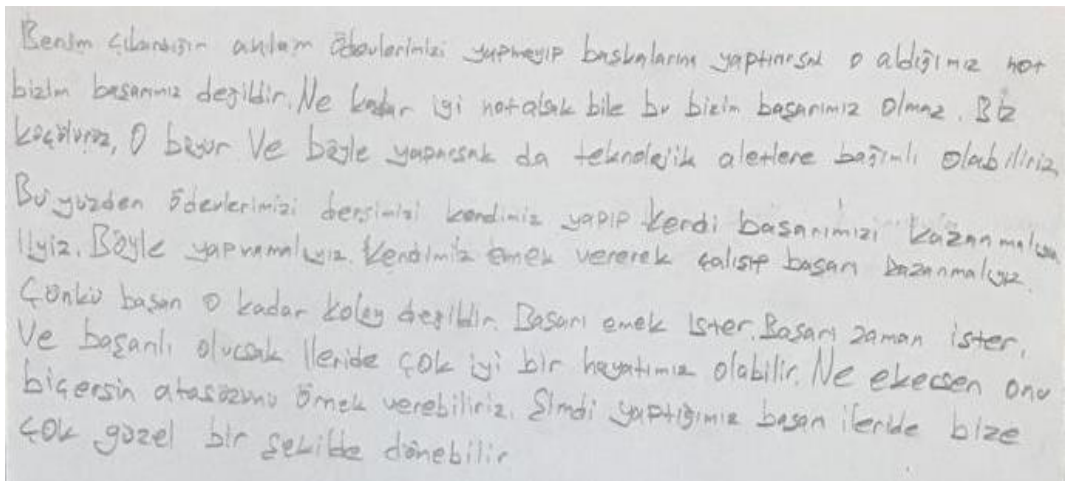 Benim çıkardığım anlam ödevlerimizi yapmayıp başkalarına yaptırırsak o aldığımız not
bizim başarımız değildir. Ne kadar iyi not alsak bile bu bizim başarımız olmaz. Biz
küçülürüz, O büyür Ve böyle yaparsak da teknolojik aletlere bağımlı olabiliriz
Bu yüzden ödevlerimizi dersimizi kendimiz yapıp kendi başarımızı
Böyle yapmamalıyız. Kendimiz emek vererek çalışıp başarı kazanmalıyız.
Çünkü başarı o kadar kolay değildir. Başarı emek ister. Başarı zaman ister.
Ve başarılı olucsak ileride çok iyi bir hayatımız olabilir. Ne ekersen onu
biçersin atasözünü örnek verebiliriz. Şimdi yaptığımız başarı ileride bize
çok güzel bir şekilde dönebilir